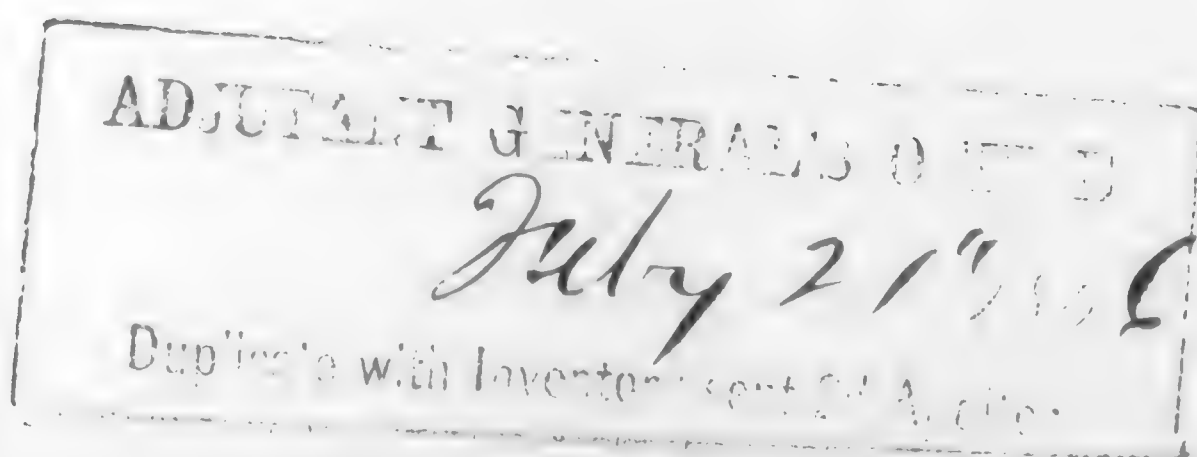 ADJUTANT GENERAL'S OFFICE
July 21" 186
Duplicate with Inventory sent 2d Auditor